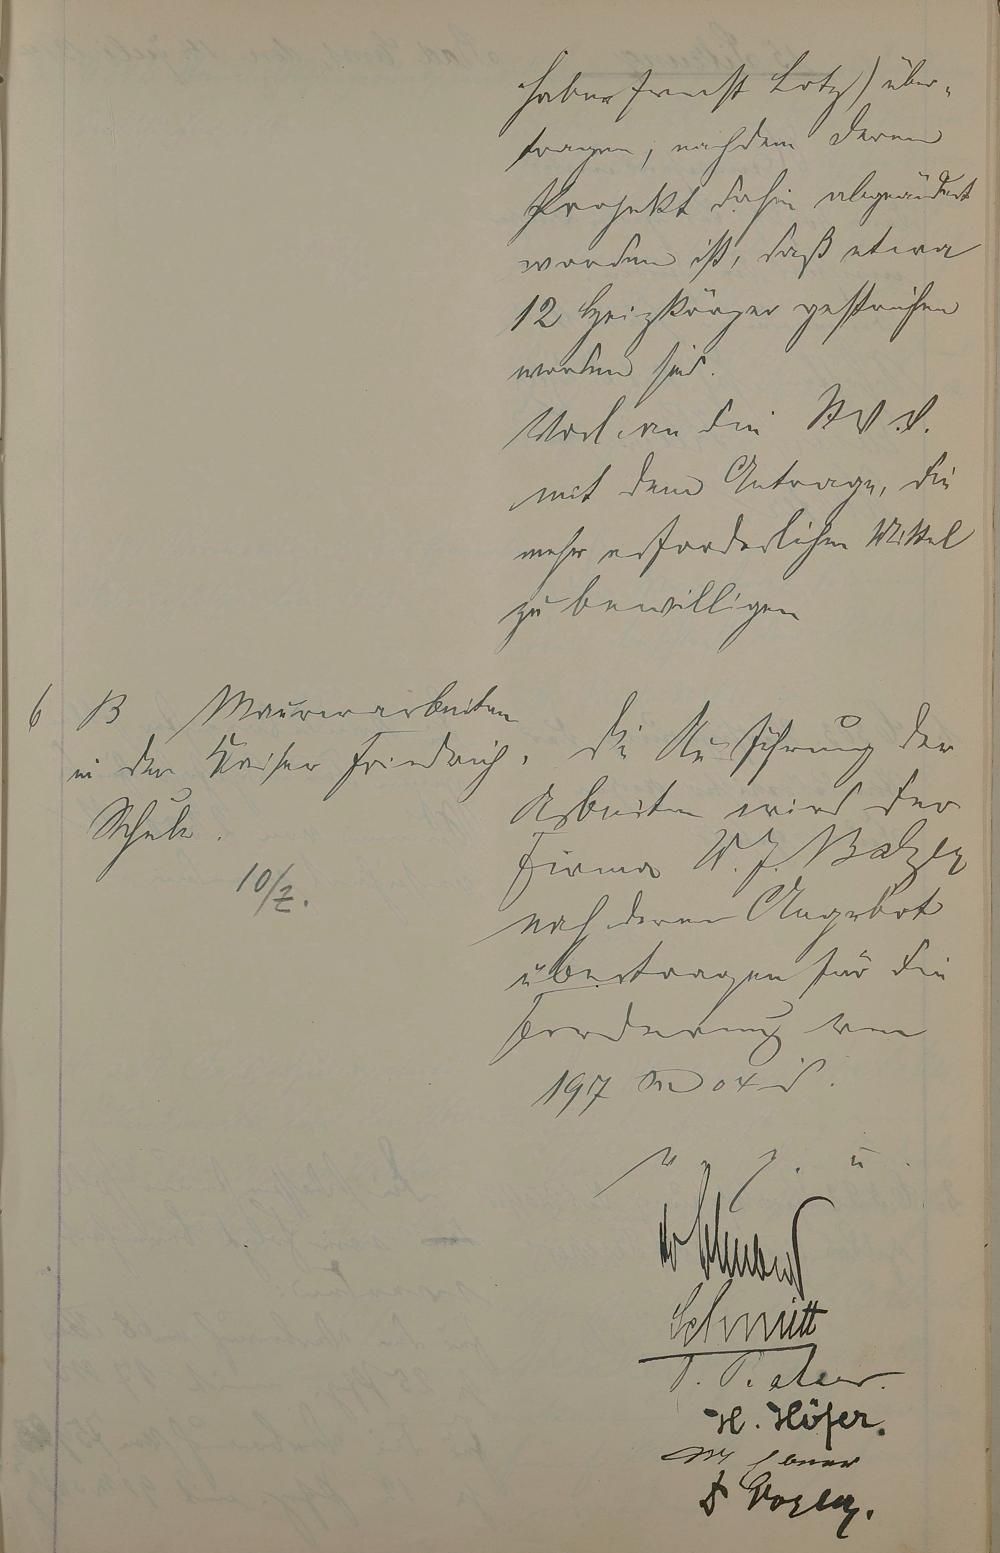 haber Ernst Lotz) über-
tragen, nachdem deren
Projekt dahin abgeändert
worden ist, daß etwa
12 Heizkörper gestrichen
worden sind.
Vorl. an die
mit dem Antrage, die
mehr erforderlichen Mittel
zu bewilligen
6 B Maurerarbeiten
in der Kaiser Friedrich-
Schule.
10/Z.
Die Ausführung der
Arbeiten wird der
Firma W. J. Balzer
nach deren Angebot
übertragen für die
Forderung von
197 M 04 d.
v. g. u.
Schmitt
H. Höfer.